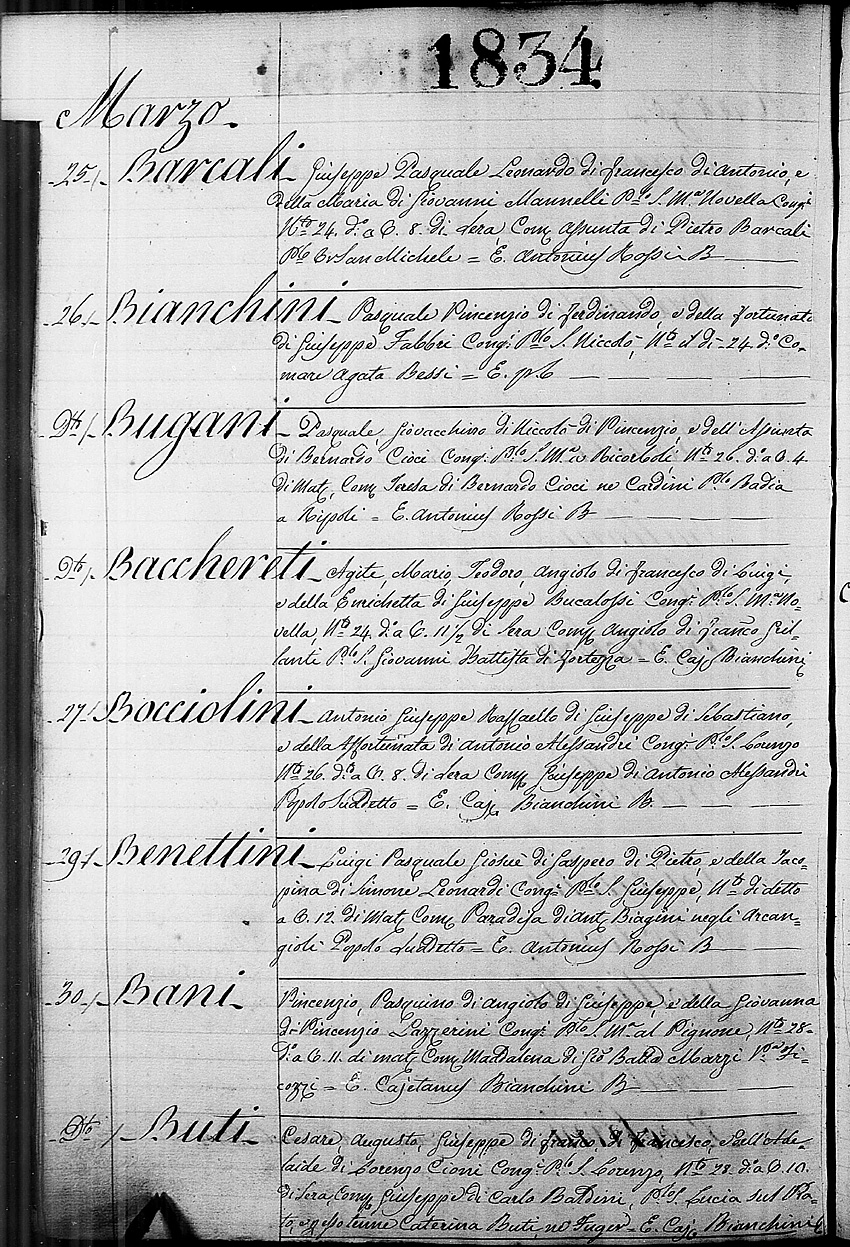 1834
Marzo
25 Barcali Giuseppe Pasquale Leonardo di Francesco di Antonio, e
della Maria di Giovanni Mannelli P.lo S. M.a Novella Cong.i
N.to 24. d.o a O. 8. di Sera, Com. Assunta di Pietro Barcali
P.lo San Michele = E. Antonius Rossi B
26 Bianchini Pasquale Vincenzio di Ferdinando, e della Fortunata
di Giuseppe Fabbri Cong.i P.lo S. Niccolò, N.to il di 24 d.o Co=
mare Agata Bessi = E.
D.to Bugani Pasquale, Giovacchino di Niccolò di Vincenzio, e dell'Assunta
di Bernardo Cioci Cong.i P.lo S. M.a a Ricorboli N.to 26. d.o a O. 4.
di Mat. Com. Teresa di Bernardo Cioci ne' Cardini P.lo Badia
a Ripoli = E. Antonius Rossi B
D.to Bacchereti Agite, Mario, Teodoro, Angiolo di Francesco di Luigi,
e della Enrichetta di Giuseppe Bucalossi Cong.i P.lo S. M.a No=
vella, N.to 24. d.o a O. 11 1/2 di Sera Com. Angiolo di Franco Gril=
lanti P.lo S. Giovanni Battista di Fortezza = E. Caj. Bianchini
27 Bocciolini Antonio Giuseppe Raffaello di Giuseppe di Sebastiano,
e della Affortunata di Antonio Alessandri Cong.i P.lo S. Lorenzo
N.to 26. d.o a O. 8. di Sera Com. Giuseppe di Antonio Alessandri
Popolo Suddetto = E. Caj. Bianchini B.
29 Benettini Luigi Pasquale Giosuè di Gaspero di Pietro, e della Jaco=
pina di Simone Leonardi Cong.i P.lo S. Giuseppe, N.to di detto
a O. 12. di Mat. Com. Paradisa di Ant. Biagini negli Arcan=
gioli Popolo Suddetto = E. Antonius Rossi B
30 Bani Vincenzio, Pasquino di Angiolo di Giuseppe, e della Giovanna
di Vincenzio Lazzerini Cong.i P.lo S. M.a al Pignone, N.to 28=
d.o a O. 11. di mat. Com. Maddalena di Gio Batta Marzi V.a Fi=
cozzi = E. Cajetanus Bianchini B
D.to Buti Cesare, Augusto, Giuseppe di Franco, di Francesco, e dell'Ade=
laide di Lorenzo Cioni Cong.i P.lo S. Lorenzo, N.to 28. d.o a O. 10.
di Sera, Com. Giuseppe di Carlo Baldini, P.lo S. Lucia sul Pra=
to, e per esso tenne Caterina Buti, ne' Fuger = E. Caj. Bianchini